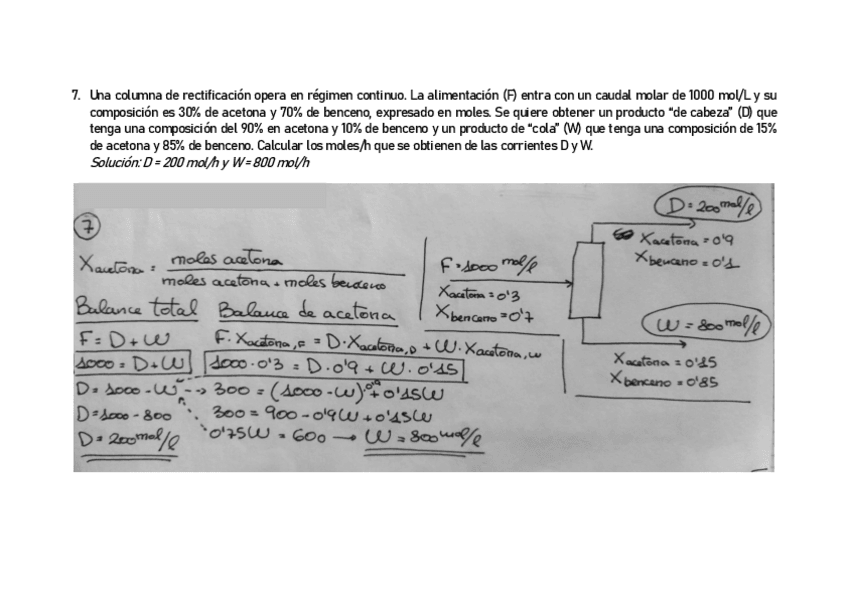 7. Una columna de rectificación opera en régimen continuo. La alimentación (F) entra con un caudal molar de 1000 mol/L y su
composición es 30% de acetona y 70% de benceno, expresado en moles. Se quiere obtener un producto “de cabeza” (D) que
tenga una composición del 90% en acetona y 10% de benceno y un producto de “cola” (W) que tenga una composición de 15%
de acetona y 85% de benceno. Calcular los moles/h que se obtienen de las corrientes D y W.
Solución: D = 200 mol/h y W = 800 mol/h
7
Xacetona = moles acetona
moles acetona + moles benceno
Balance total
F = D + W
1000 = D + W
D = 1000 - W
D = 1000 - 800
D = 200 mol/l
Balance de acetona
F · Xacetona,F = D · Xacetona,D + W · Xacetona,W
1000 · 0'3 = D · 0'9 + W · 0'15
300 = (1000 - W) 0'9 + 0'15W
300 = 900 - 0'9W + 0'15W
0'75W = 600 → W = 800 mol/l
F = 1000 mol/l
Xacetona = 0'3
Xbenceno = 0'7
D = 200 mol/l
Xacetona = 0'9
Xbenceno = 0'1
W = 800 mol/l
Xacetona = 0'15
Xbenceno = 0'85